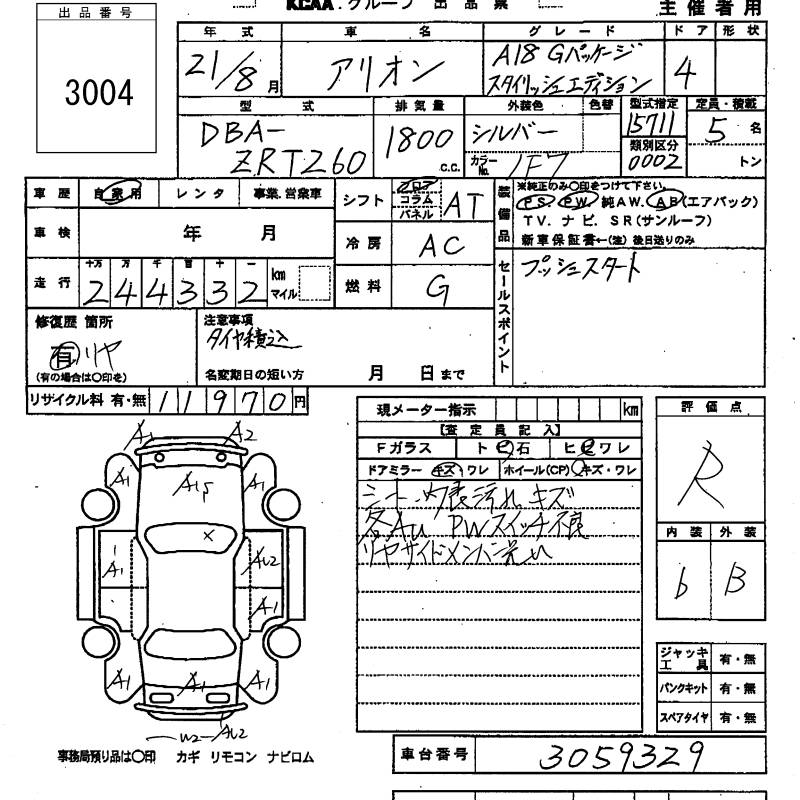 KCAA.グループ 出品票
主催者用
出品番号
3004
年式 車名 グレード ドア 形状
21/8月 アリオン A18 Gパッケージ 4
スタイリッシュエディション
型式 排気量 外装色 色替 型式指定 定員・積載
DBA- 1800 シルバー 15711 5名
ZRT260 c.c. カラーNo. 1F7 類別区分 0002 トン
車歴 自家用 レンタ 事業.営業車
シフト フロア コラム パネル AT
装備品 ※純正のみ〇印をつけて下さい。
PS. PW. 純AW. AB(エアバック)
TV. ナビ. SR(サンルーフ)
新車保証書←(注)後日送りのみ
車検 年 月
冷房 AC
走行 十万 万 千 百 十 一
244332 km マイル
燃料 G
セールスポイント
プッシュスタート
修復歴 箇所
有 リヤ
(有の場合は〇印を)
注意事項
タイヤ積込
名変期日の短い方 月 日まで
リサイクル料 有・無 11970円
現メーター指示 km
【査定員記入】
Fガラス トビ石 ヒビワレ
ドアミラー キズ・ワレ ホイール(CP) キズ・ワレ
シート・内装汚れ キズ
各AU PWスイッチ不良
リヤサイドメンバー
評価点
R
内装 外装
b B
A1 A2
A1 A1
×
A1 AU2
A1
A1 A1 A1
U2 AU2
ジャッキ工具 有・無
パンクキット 有・無
スペアタイヤ 有・無
事務局預り品は〇印 カギ リモコン ナビロム
車台番号 3059329